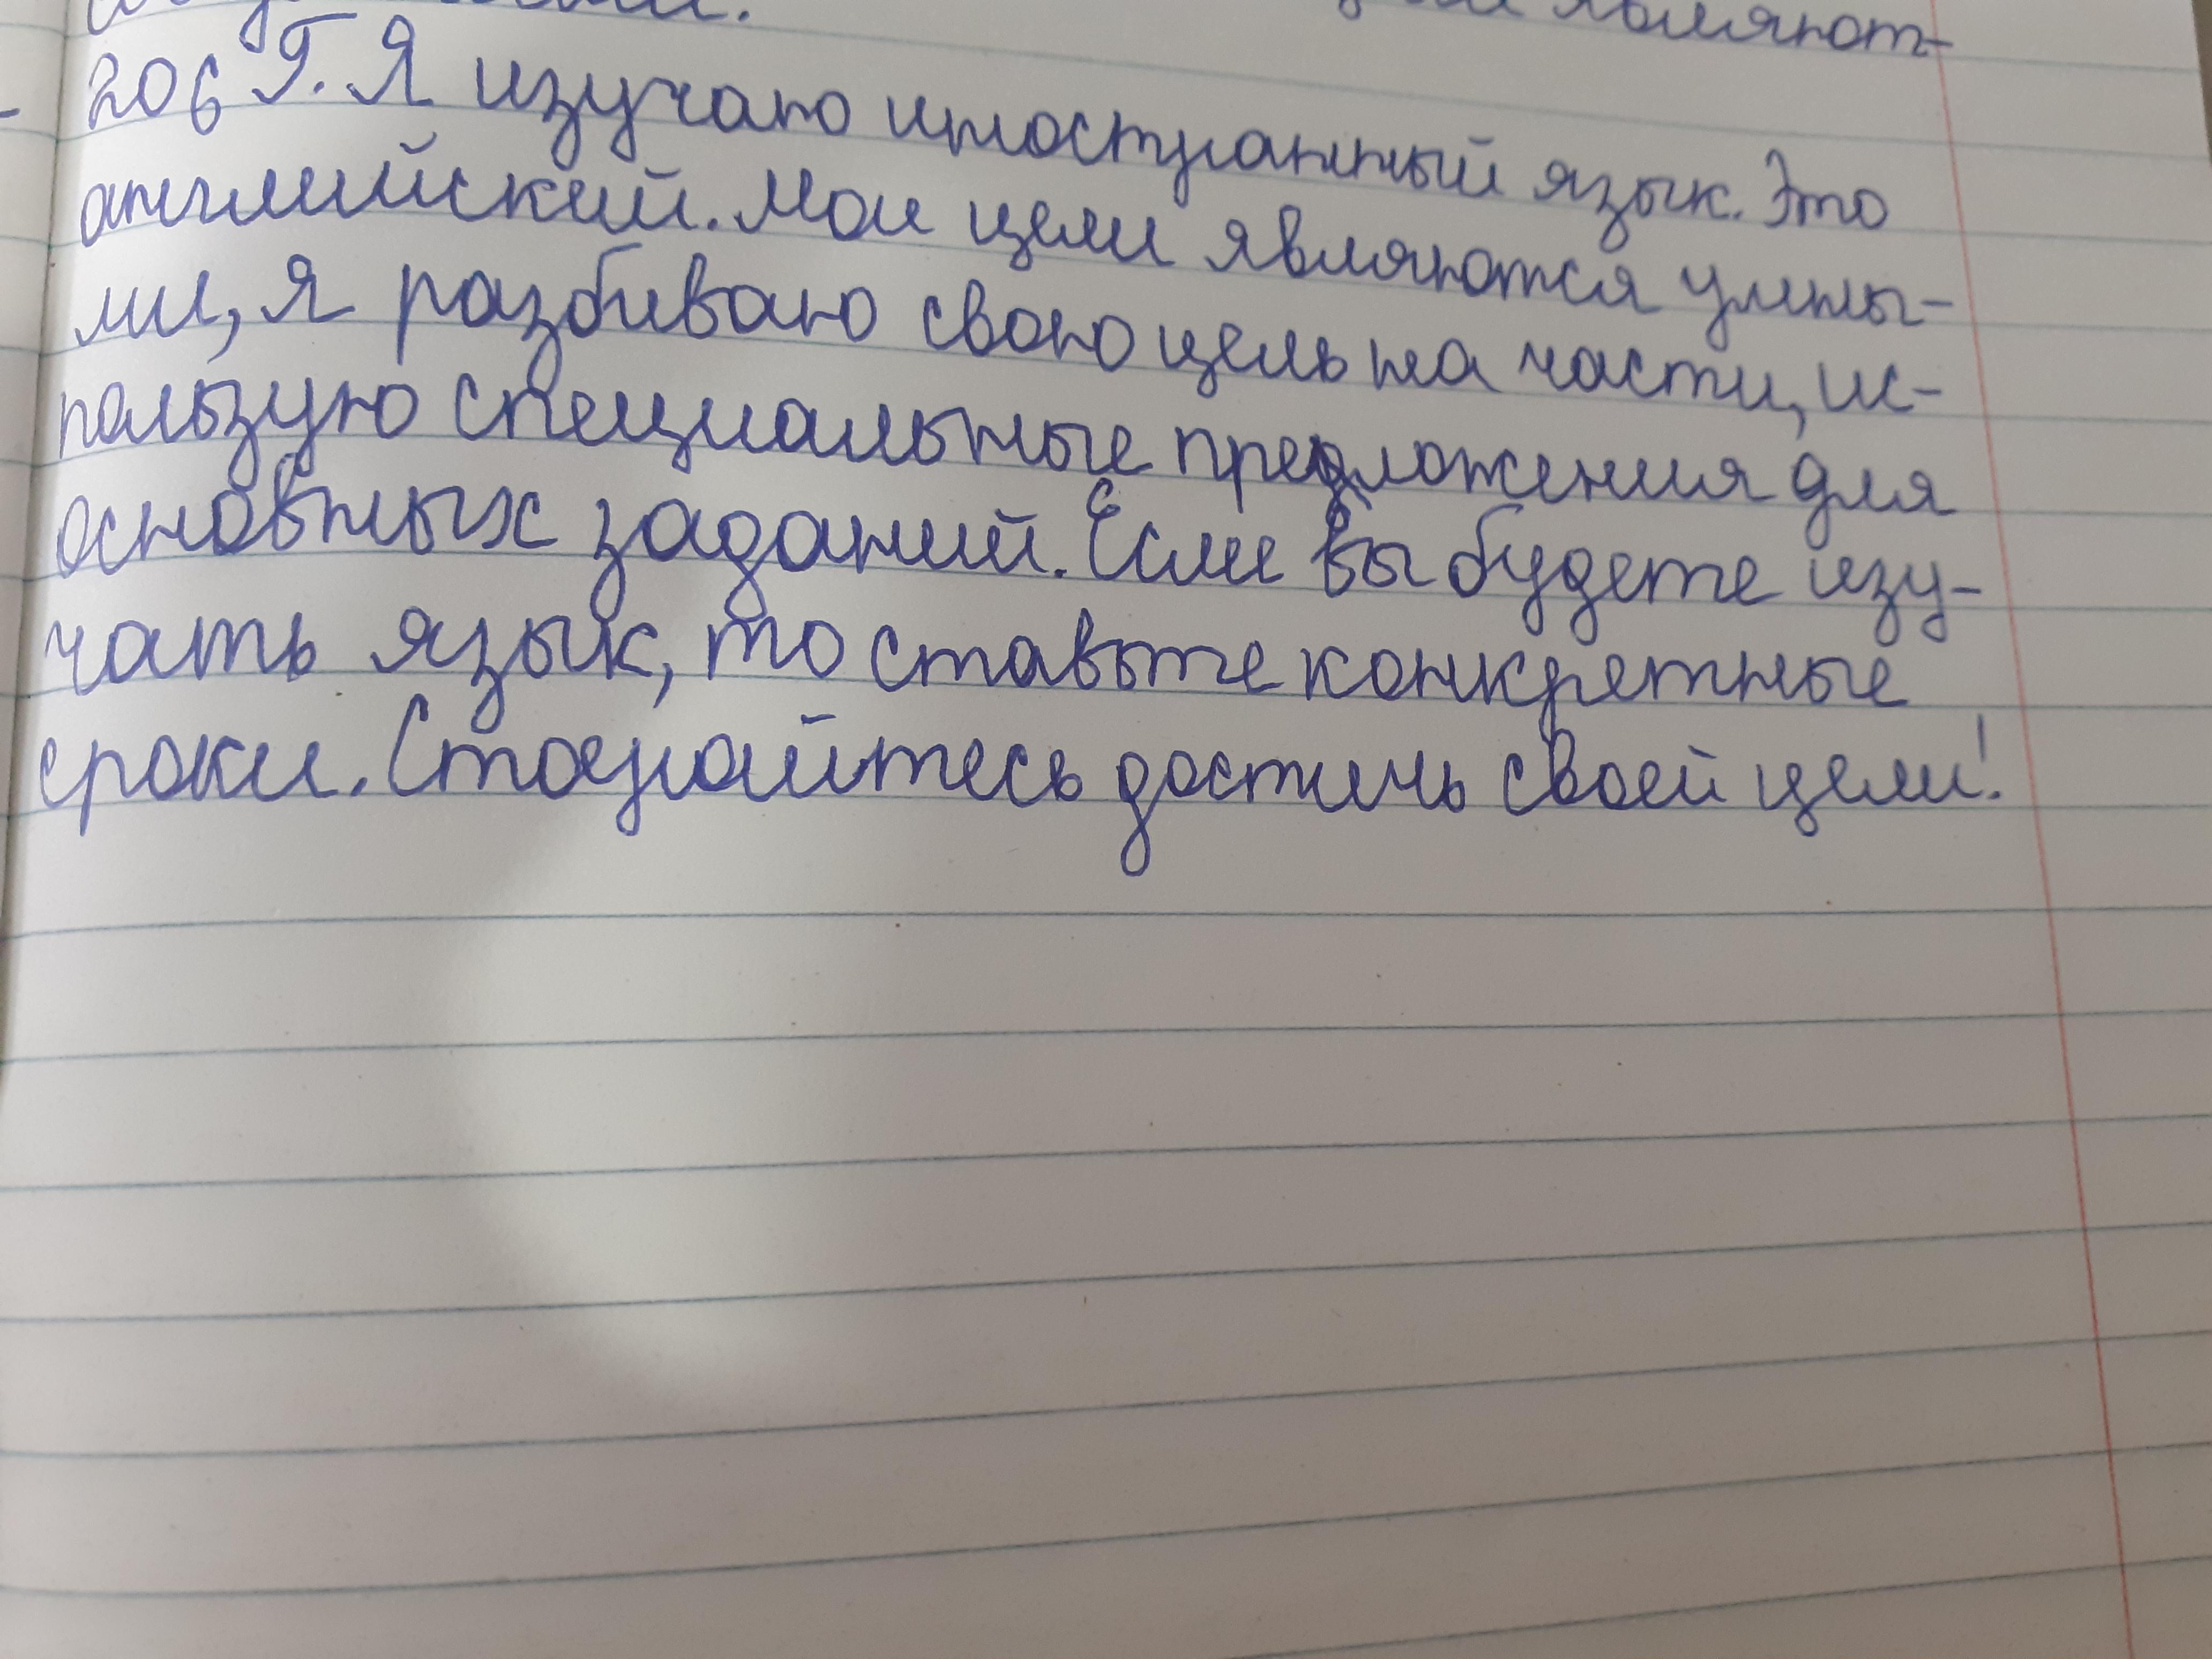 являют-
206 Г. Я изучаю иностранный язык. Это
английский. Мои цели являются умны-
ми, я разбиваю свою цель на части, ис-
пользую специальные предложения для
основных заданий. Если вы будете изу-
чать язык, то ставьте конкретные
сроки. Стопайтесь достичь своей цели!